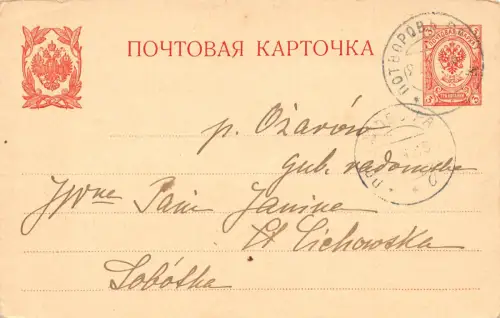 ПОЧТОВАЯ КАРТОЧКА
ПОТВОРОВЪ
3 3
p. Ożarów
gub. radomska
JWne Pani Janina
Cichowska
Sobótka